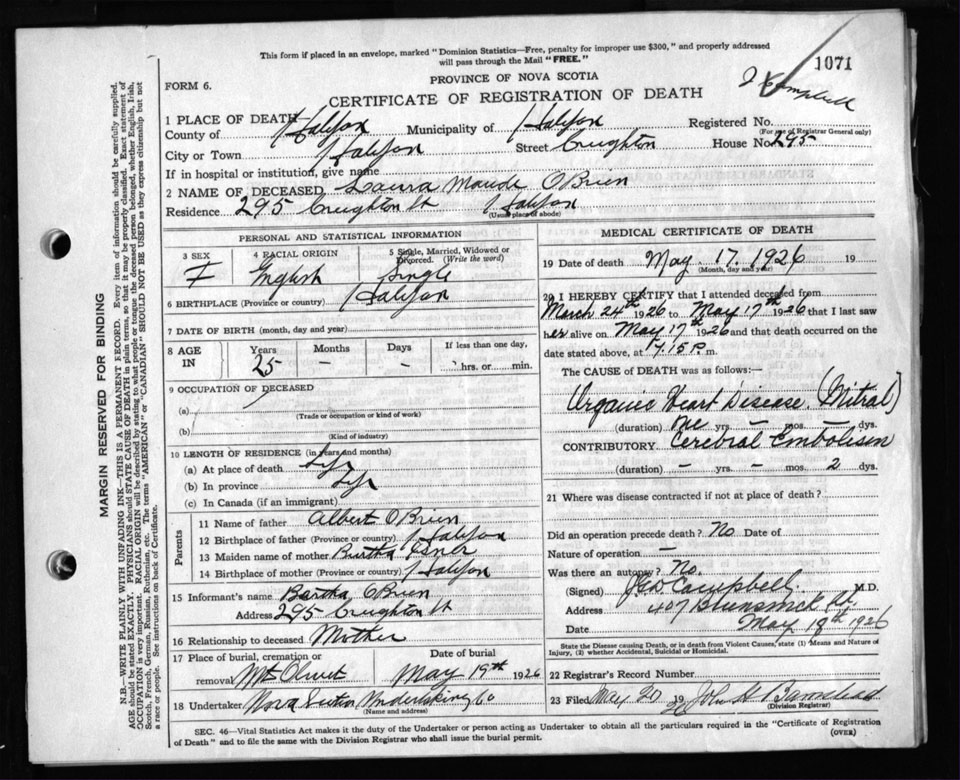 This form if placed in an envelope, marked "Dominion Statistics—Free, penalty for improper use $300," and properly addressed
will pass through the Mail "FREE."
1071
J Campbell
PROVINCE OF NOVA SCOTIA
FORM 6.
CERTIFICATE OF REGISTRATION OF DEATH
1 PLACE OF DEATH
County of Halifax Municipality of Halifax Registered No.
(For use of Registrar General only)
City or Town Halifax Street Creighton House No. 295
If in hospital or institution, give name
2 NAME OF DECEASED Laura Maude OBrien
Residence 295 Creighton St Halifax
(Usual place of abode)
PERSONAL AND STATISTICAL INFORMATION
3 SEX 4 RACIAL ORIGIN 5 Single, Married, Widowed or Divorced. (Write the word)
F English Single
6 BIRTHPLACE (Province or country) Halifax
7 DATE OF BIRTH (month, day and year)
8 AGE IN Years Months Days If less than one day,
25 — — hrs. or min.
9 OCCUPATION OF DECEASED
(a)
(Trade or occupation or kind of work)
(b)
(Kind of industry)
10 LENGTH OF RESIDENCE (in years and months)
(a) At place of death Life
(b) In province Life
(c) In Canada (if an immigrant)
Parents
11 Name of father Albert OBrien
12 Birthplace of father (Province or country) Halifax
13 Maiden name of mother Bertha Isner
14 Birthplace of mother (Province or country) Halifax
15 Informant's name Bertha OBrien
Address 295 Creighton St
16 Relationship to deceased Mother
17 Place of burial, cremation or Date of burial
removal Mt Olivet May 19th 1926
18 Undertaker Nova Scotia Undertaking Co
(Name and address)
MEDICAL CERTIFICATE OF DEATH
19 Date of death May. 17. 1926 19
(Month, day and year)
20 I HEREBY CERTIFY that I attended deceased from
March 24th 1926 to May 17th 1926 that I last saw
her alive on May 17th 1926 and that death occurred on the
date stated above, at 7.15 P. m.
The CAUSE of DEATH was as follows:—
Organic Heart Disease. (Mitral)
(duration) yrs. — mos. — dys.
CONTRIBUTORY. Cerebral Embolism
(duration) — yrs. — mos. 2 dys.
21 Where was disease contracted if not at place of death?
Did an operation precede death? No Date of
Nature of operation —
Was there an autopsy? No.
(Signed) Campbell M.D.
Address 407 Brunswick St,
Date May 18th 1926
State the Disease causing Death, or in death from Violent Causes, state (1) Means and Nature of
Injury, (2) whether Accidental, Suicidal or Homicidal.
22 Registrar's Record Number
23 Filed May 20 19 John H Barnstead
(Division Registrar)
SEC. 46—Vital Statistics Act makes it the duty of the Undertaker or person acting as Undertaker to obtain all the particulars required in the "Certificate of Registration
of Death" and to file the same with the Division Registrar who shall issue the burial permit.
(OVER)
MARGIN RESERVED FOR BINDING
N.B.—WRITE PLAINLY WITH UNFADING INK—THIS IS A PERMANENT RECORD. Every item of information should be carefully supplied.
AGE should be stated EXACTLY. PHYSICIANS should STATE CAUSE OF DEATH in plain terms, so that it may be properly classified. Exact statement of
OCCUPATION is very important. RACIAL ORIGIN will be described by stating to what people or tongue the deceased person belonged, whether English, Irish,
Scotch, French, German, Russian, Ruthenian, etc. The terms "AMERICAN" or "CANADIAN" SHOULD NOT BE USED as they express citizenship but not
a race or people. See instructions on back of Certificate.